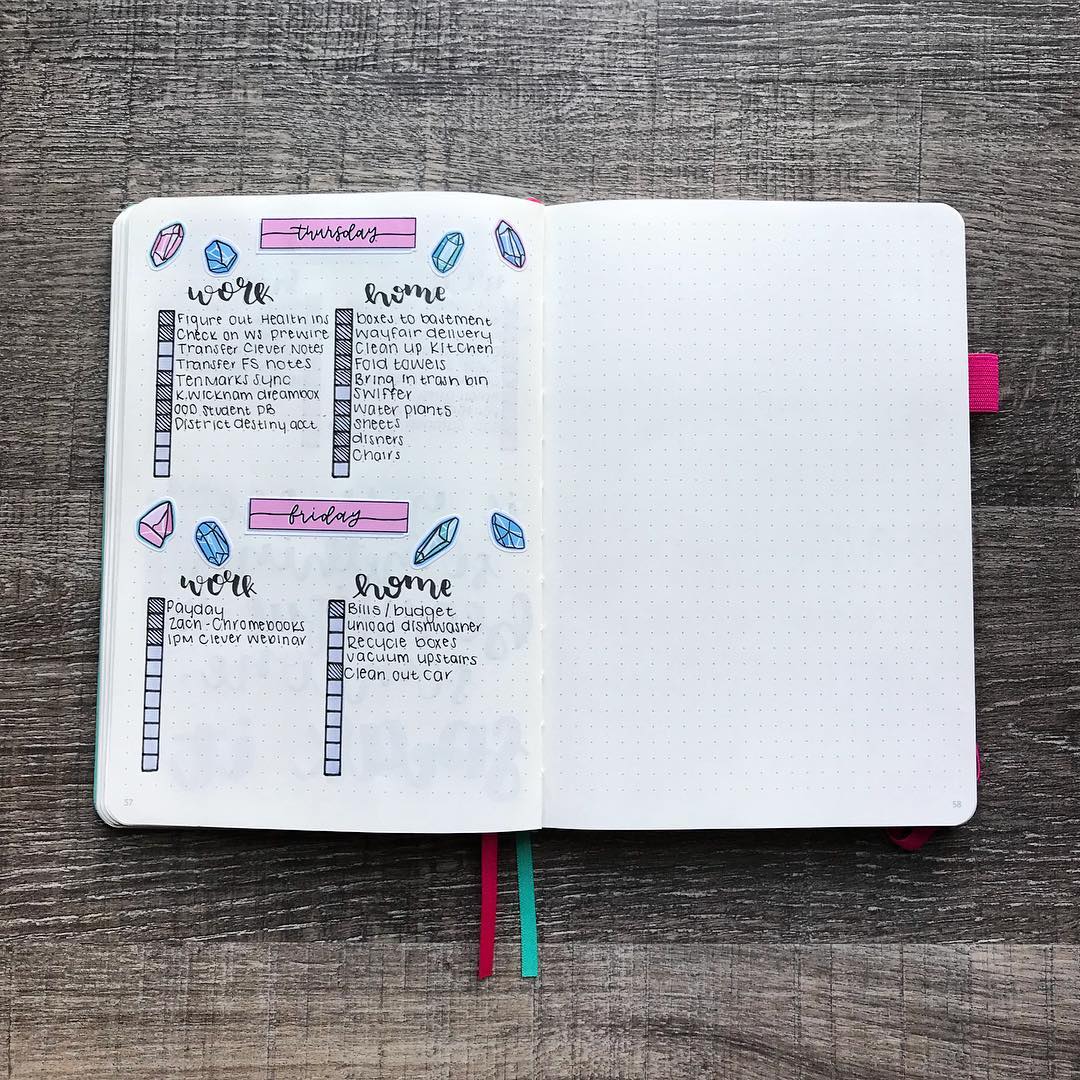 thursday
work
Figure out Health ins
Check on WS prewire
Transfer Clever Notes
Transfer FS notes
TenMarks Sync
K.Wicknam dreambox
OOD Student DB
District destiny acct
home
boxes to basement
Wayfair delivery
Clean up Kitchen
Fold towels
Bring in trash bin
Swiffer
Water plants
sheets
disners
Chairs
friday
work
Payday
Zach-Chromebooks
1PM Clever Webinar
home
Bills/budget
unload dishwasher
Recycle boxes
vacuum upstairs
Clean out car
57
58